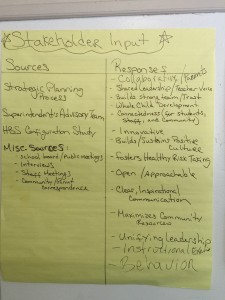 ☆Stakeholder Input☆
Sources
Strategic Planning
Process
Superintendent's Advisory Team
HBS Configuration Study
Misc. Sources:
- School board/Public Meetings
- Interviews
- Staff Meetings
- Community/
Correspondence
Responses
- Collaborative/Parents
- Shared Leadership/Teacher Voice
- Builds strong team/Trust
- Whole Child Development
- Connectedness (for students,
Staff, and Community)
- Innovative
- Builds/Sustains Positive
Culture
- Fosters Healthy Risk Taking
- Open/Approachable
- Clear, Inspirational
Communication
- Maximizes Community
Resources
- Unifying Leadership
- Instructional
- Behavior